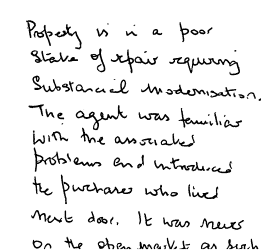 Property is in a poor
state of repair requiring
substancial modernisation.
The agent was familiar
with the associated
problems and introduced
the purchaser who lived
next door. It was never
on the open market as such